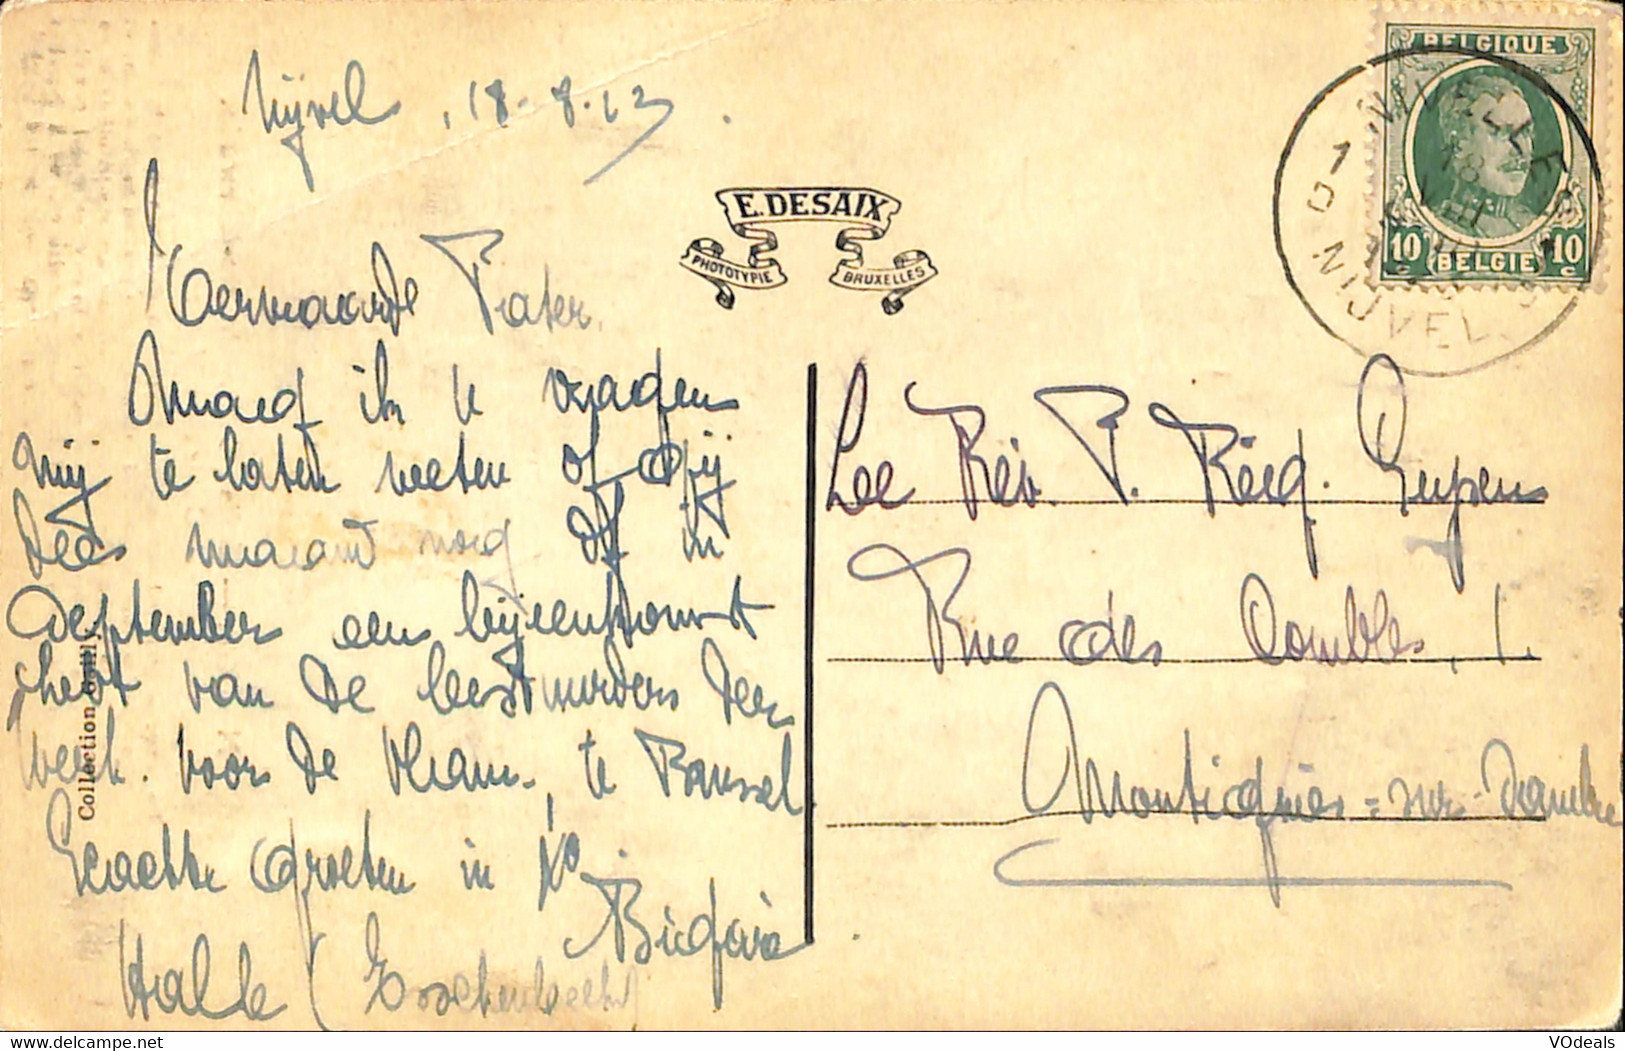 Nijvel, 18-8-23.
Eerwaarde Pater,
Mag ik U vragen
mij te laten weten of Gij
dees maand nog of in
September een bijeenkomst
hebt van de bestuurders der
werk. voor de Vlam., te Brussel.
Groeten in Xo.
Halle (
BELGIQUE
10 10
BELGIE
NIVELLES
18 VIII
NIJVEL
E. DESAIX
PHOTOTYPIE BRUXELLES
Le Rév. P. Kuypens
Rue des Combles, 1.
Montignies-sur-Sambre
Collection
VOdeals
www.delcampe.net